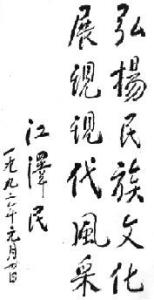 弘揚民族文化
展現現代風采
江澤民
一九九六年元月廿日